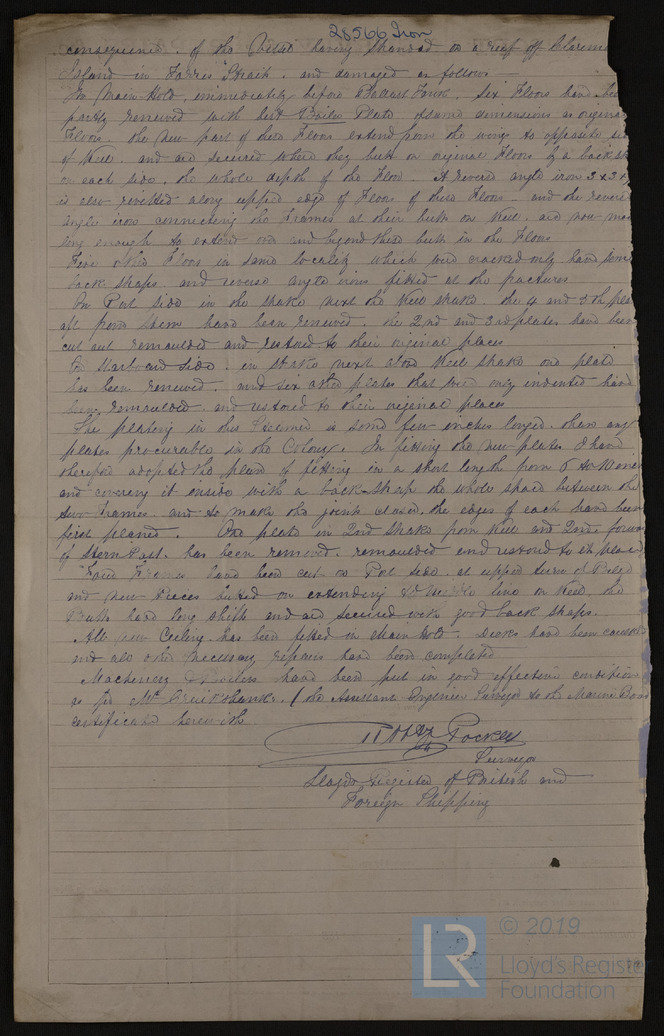 28566 Iron
consequence of the Vessel having stranded on a reef off Clarence
Island in Torres Strait and damaged as follows
In Main Hold, immediately before Ballast Tank, Six Floors have been
partly renewed with best Boiler Plate of same dimensions as original
Floors. The new part of these Floors extend from the wings to opposite side
of Keel, and are secured where they butt on original Floors by a back strap
on each side, the whole depth of the Floor. A reversed angle iron 3 x 3 x
is also rivetted along upper edge of Floors of these Floors and the reversed
angle iron connecting the Frames at their butts on Keel, are now made
long enough to extend over and beyond these butts in the Floors
Five other Floors in same locality which were cracked only have some
back straps and reverse angle irons fitted at the fractures
On Port side in the strake next the Keel strake, the 4 and 5th plates
aft from Stem have been renewed, the 2nd and 3rd plates have been
cut out remoulded and restored to their original places
On Starboard side, in strake next above Keel strake one plate
has been renewed, and six other plates that were only indented have
been remoulded and restored to their original places
The plating in this Steamer is some few inches longer than any
plates procurable in the Colony. In fitting the new plates I have
therefore adopted the plan of fitting in a short length from
and covering it inside with a back strap the whole space between the
two Frames, and to make the joints close, the edges of each have been
first planed. One plate in 2nd strake from Keel and 2nd forward
of Stern Post has been removed, remoulded and restored to its place
Frames have been cut on Port side at upper turn of Bilge
and new pieces butted on extending to line on Keel, the
Butts have long shifts and are secured with good back straps.
All new Ceiling has been fitted in Main Hold. Decks have been caulked
and all other necessary repairs have been completed
Machinery & Boilers have been put in good effective condition
as per Mr Cruikshank, (the Assistant Engineer Surveyor to the Marine Board
certificate herewith
Pockley
Surveyor
Lloyds Register of British and
Foreign Shipping
© 2019
LR
Lloyd's Register
Foundation